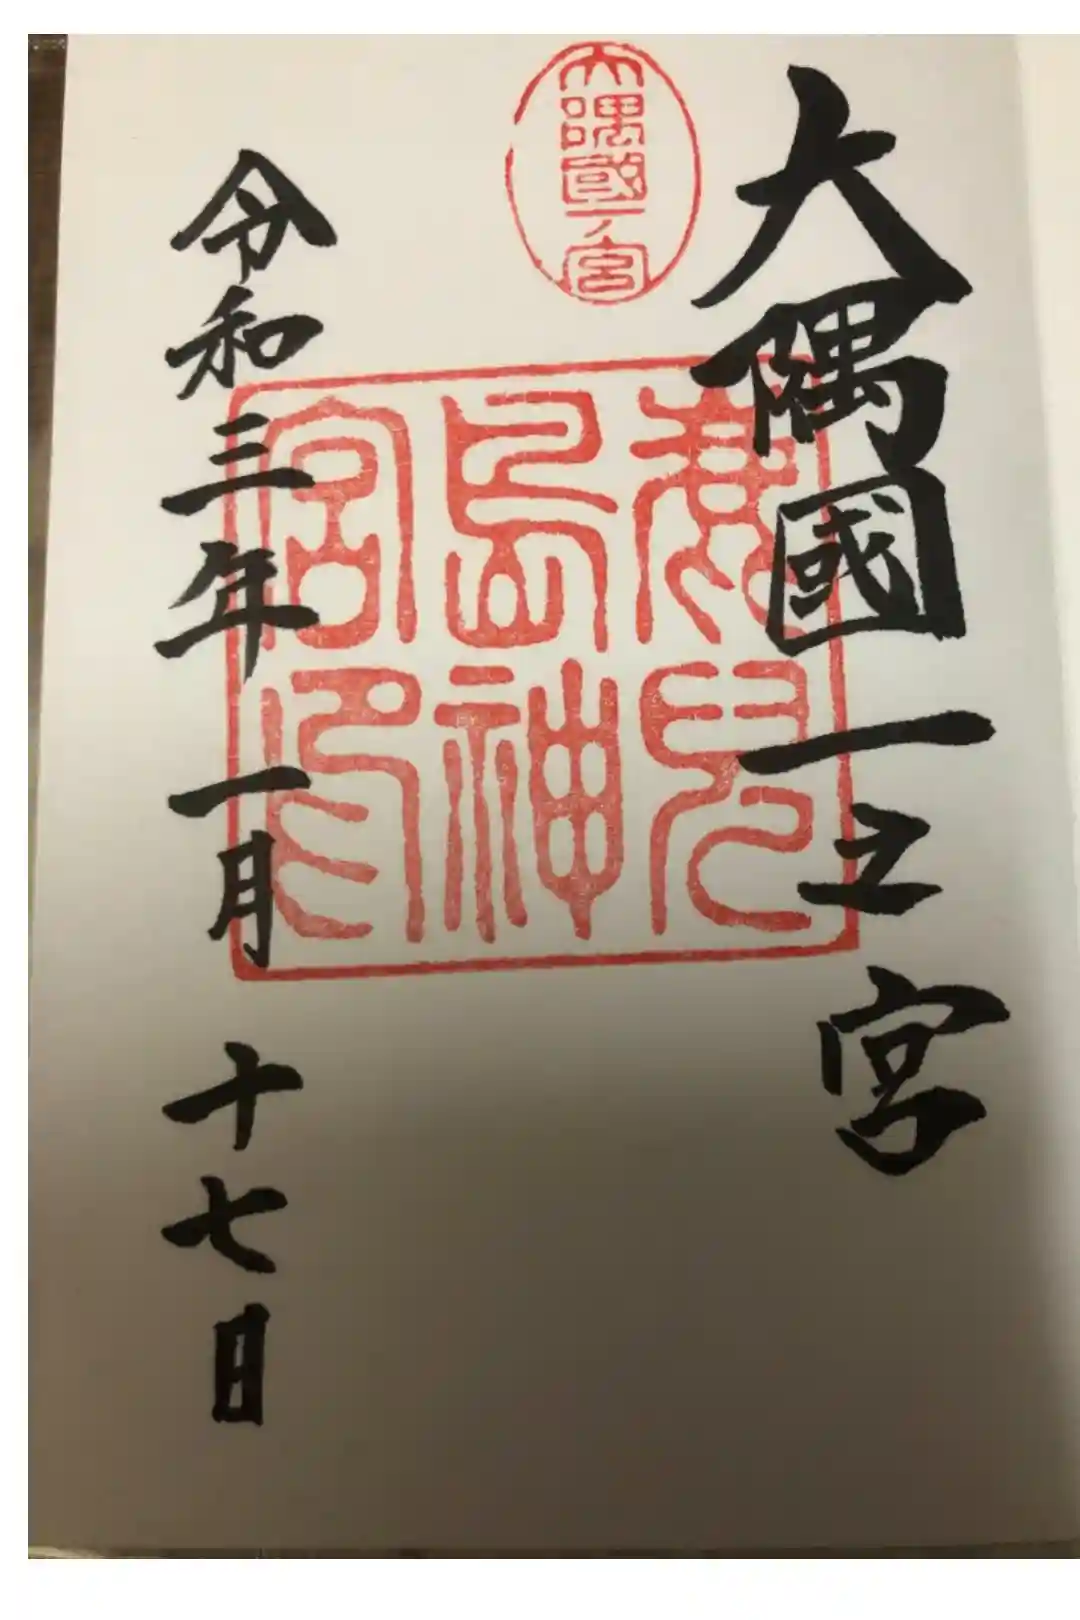 大隅國一之宮
大隅國一ノ宮
鹿兒
島神
宮印
令和三年一月十七日